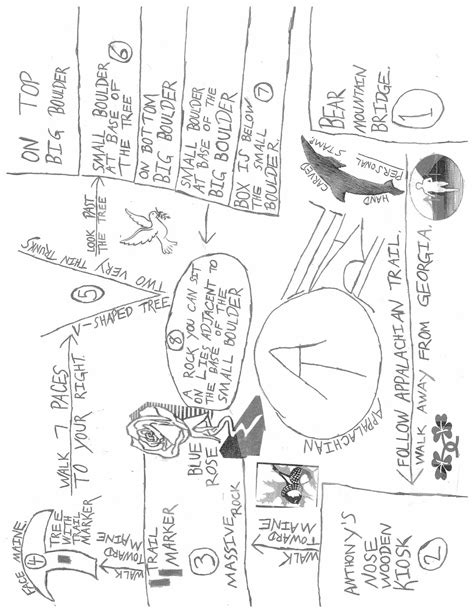 BEAR
MOUNTAIN
BRIDGE.
1
HAND
CARVED
PERSONAL
STAMP
FOLLOW APPALACHIAN TRAIL.
WALK AWAY FROM GEORGIA.
APPALACHIAN
A
ANTHONY'S
NOSE
WOODEN
KIOSK
2
WALK
TOWARD
MAINE
MASSIVE ROCK
3
TRAIL
MARKER
BLUE
ROSE
WALK
TOWARD
MAINE
FACE MAINE.
4
TREE
WITH
TRAIL
MARKER
WALK 7 PACES
TO YOUR RIGHT.
-SHAPED TREE
5
TWO VERY THIN TRUNKS
LOOK PAST
THE TREE
ON TOP
BIG BOULDER
SMALL BOULDER
AT BASE OF
THE TREE
6
ON BOTTOM
BIG BOULDER
SMALL BOULDER
AT BASE OF THE
BIG BOULDER
7
BOX IS BELOW
THE SMALL
BOULDER.
8
A ROCK YOU CAN SIT
ON LIES ADJACENT TO
THE BASE OF THE
SMALL BOULDER